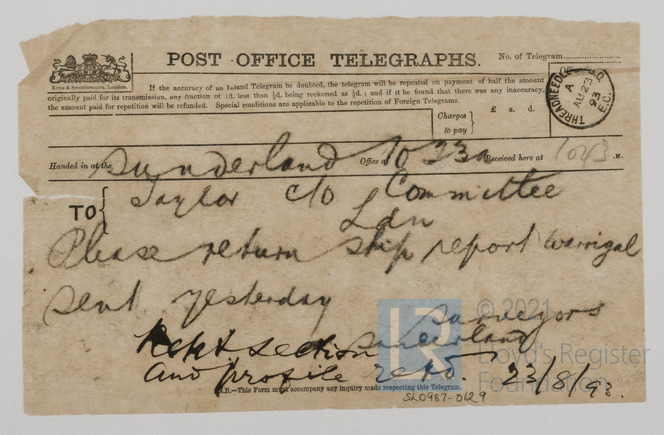 POST OFFICE TELEGRAPHS.
No. of Telegram
If the accuracy of an Inland Telegram be doubted, the telegram will be repeated on payment of half the amount
originally paid for its transmission, any fraction of 1d. less than ½d. being reckoned as ½d.; and if it be found that there was any inaccuracy,
the amount paid for repetition will be refunded. Special conditions are applicable to the repetition of Foreign Telegrams.
Charges to pay } £ s. d.
THREADNEEDLE
A
AU 23
93
E.C.
Handed in at the Sunderland Office at 10.33a Received here at 1043 M.
TO { Taylor c/o Committee
Ldn
Please return ship report Warrigal
sent yesterday
Surveyors
Sunderland
section
and profile retd. 23/8/93.
N.B.—This Form must accompany any inquiry made respecting this Telegram.
SLD987-0129
© 2021
LR
Lloyd's Register
Foundation